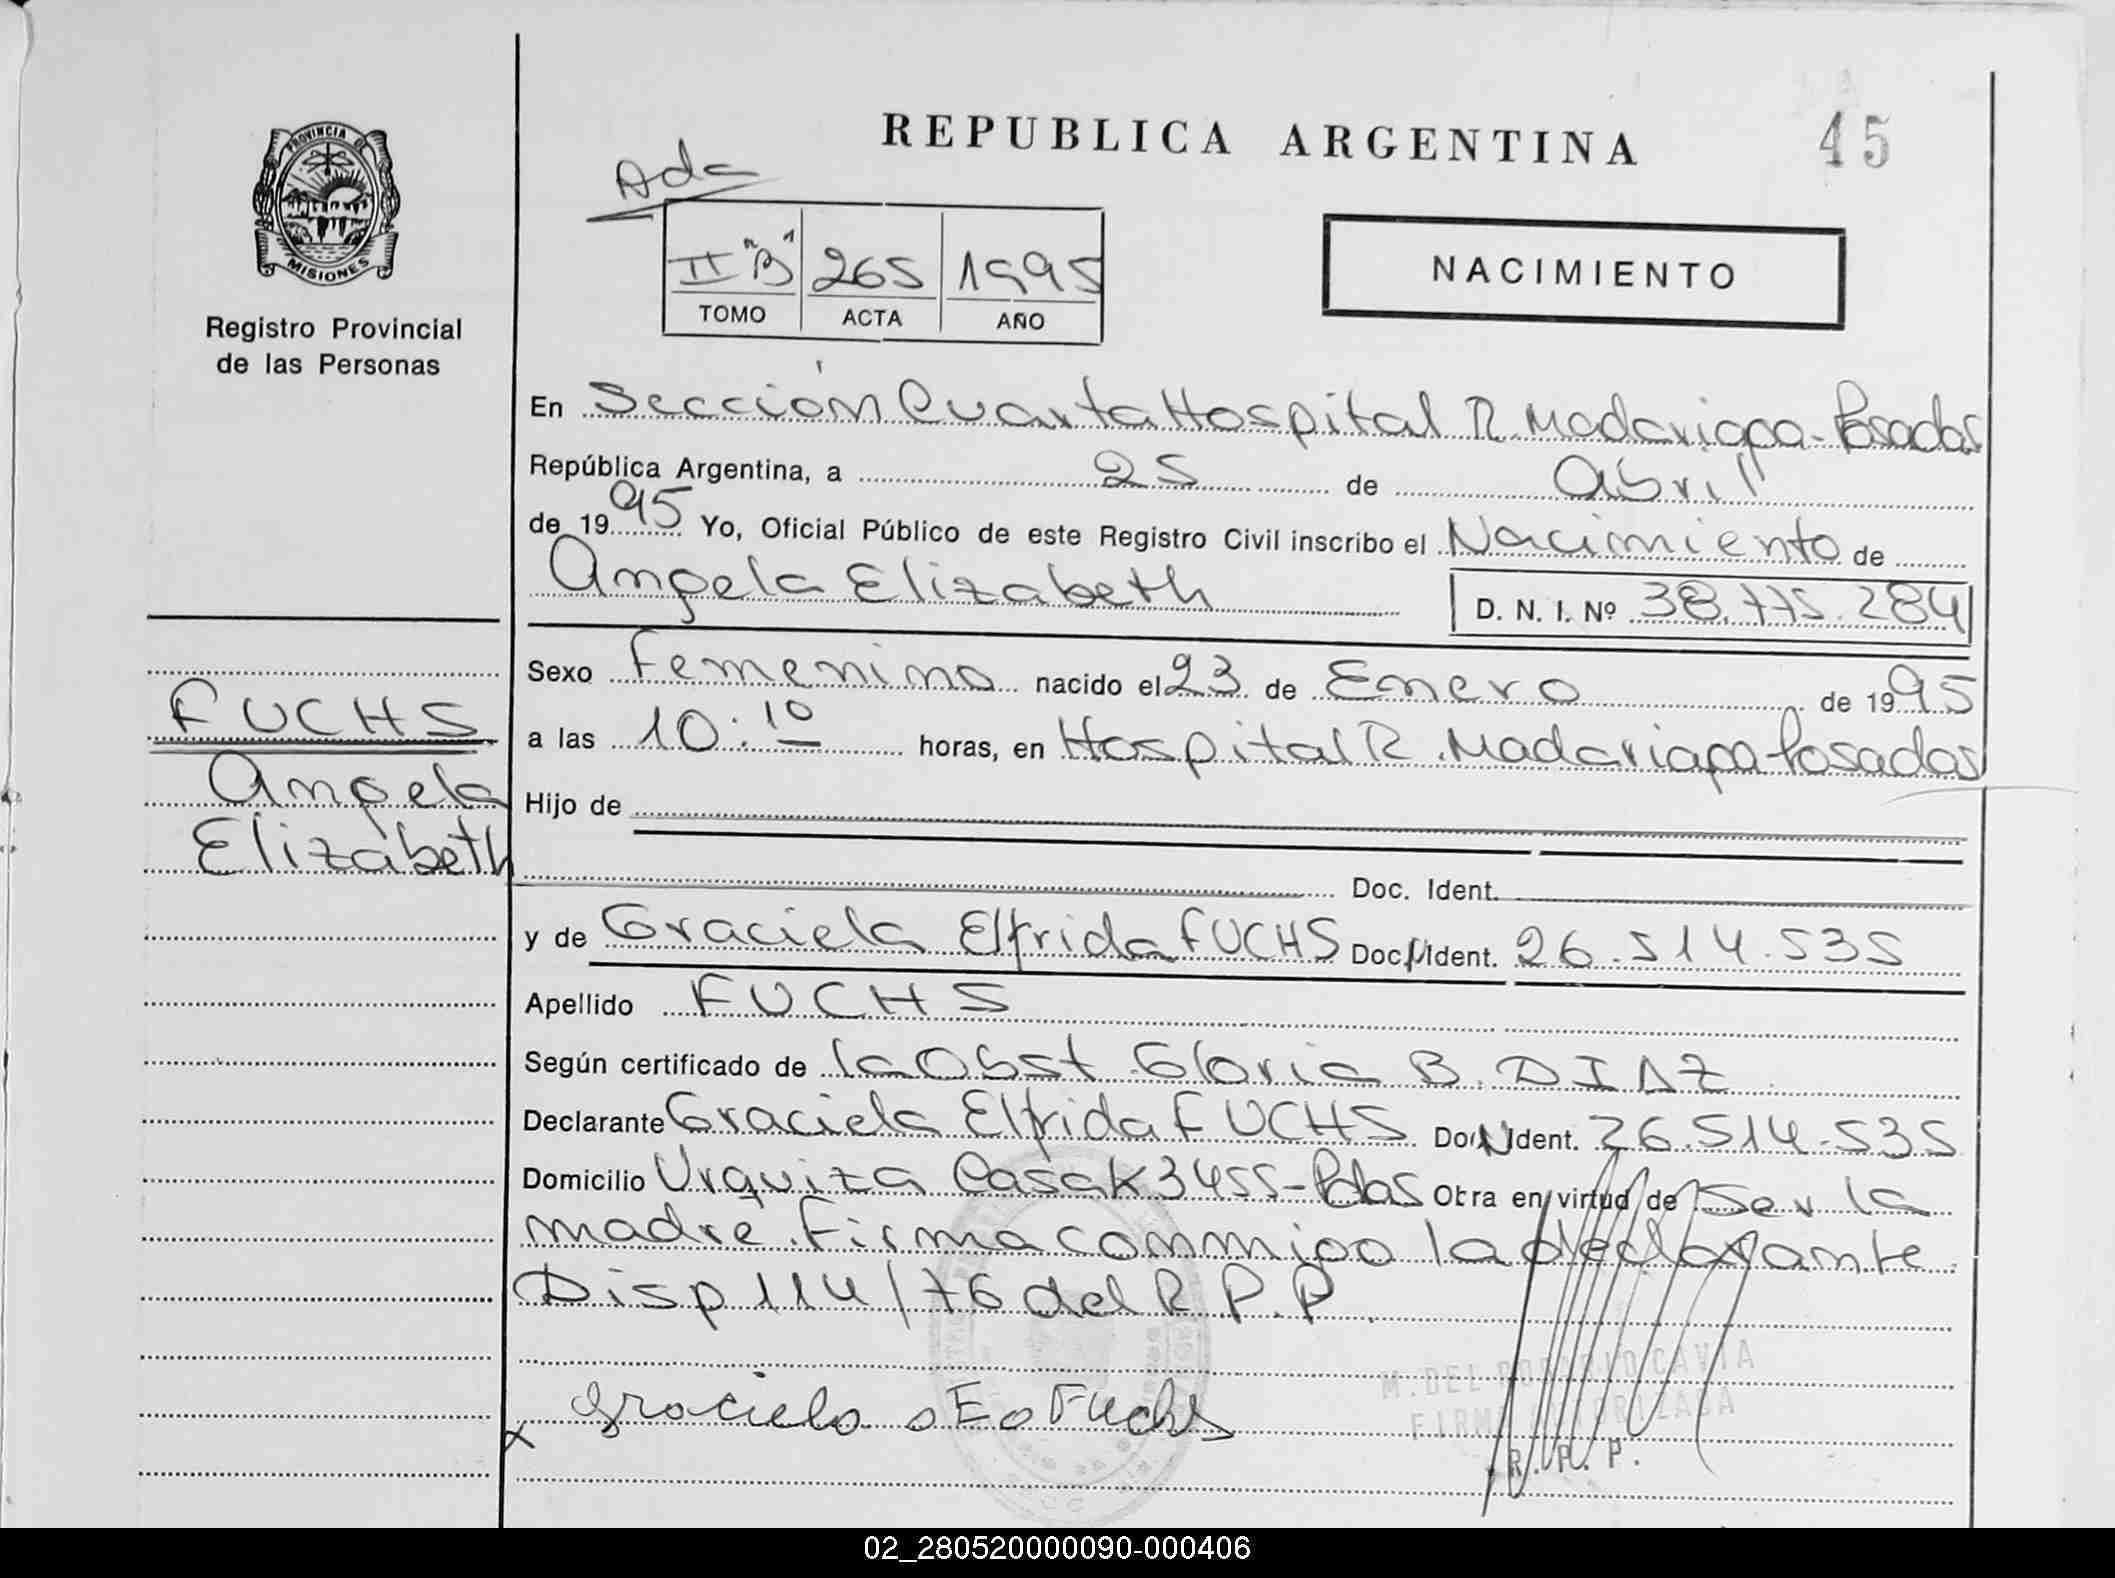 PROVINCIA DE
MISIONES
Registro Provincial
de las Personas
FUCHS
Angela
Elizabeth
REPUBLICA ARGENTINA
45
Ada
II "B" 265 1995
TOMO ACTA AÑO
NACIMIENTO
En Sección Cuarta Hospital R. Madariaga - Posadas
República Argentina, a 25 de Abril
de 1995 Yo, Oficial Público de este Registro Civil inscribo el Nacimiento de
Angela Elizabeth D. N. I. Nº 38.775.284
Sexo Femenino nacido el 23 de Enero de 1995
a las 10:10 horas, en Hospital R. Madariaga Posadas
Hijo de
Doc. Ident.
y de Graciela Elfrida FUCHS Doc. N Ident. 26.514.535
Apellido FUCHS
Según certificado de la Obst. Gloria B. DIAZ
Declarante Graciela Elfrida FUCHS Doc. N Ident. 26.514.535
Domicilio Urquiza Casa K 3455 - Pdas Obra en virtud de ser la
madre. Firma conmigo la declarante
Disp 114/76 del R.P.P.
x Graciela E. Fuchs
M. DEL ROSARIO CAVIA
FIRMA AUTORIZADA
R. P. P.
02_280520000090-000406